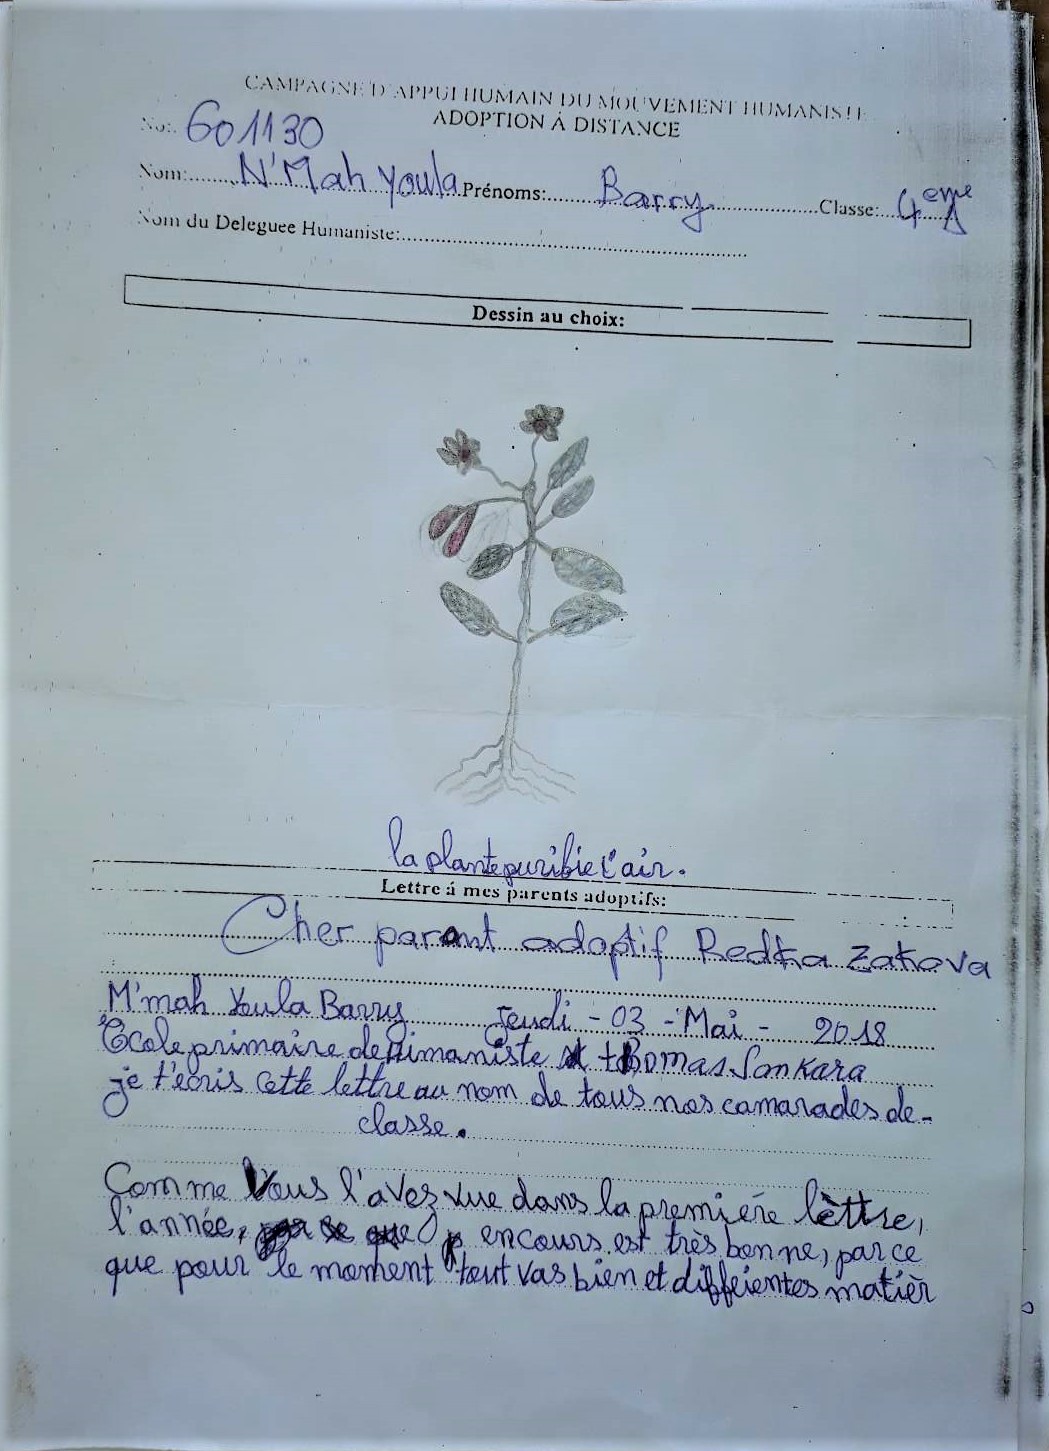 CAMPAGNE D'APPUI HUMAIN DU MOUVEMENT HUMANISTE
ADOPTION Á DISTANCE
No: 601130
Nom: N'Mah Youla Prénoms: Barry Classe: 4eme A
Nom du Deleguee Humaniste:
Dessin au choix:
la plante puribie l'air.
Lettre á mes parents adoptifs:
Cher parant adoptif Redka Zakova
M'mah Youla Barry Jeudi - 03 - Mai - 2018
Ecole primaire de Himaniste thomas Sankara
je t'ecris cette lettre au nom de tous nos camarades de-
classe.
Comme Vous l'avez vue dans la premiére lèttre,
l'année, encours est très bonne, parce
que pour le moment tout vas bien et diffeientes matièr